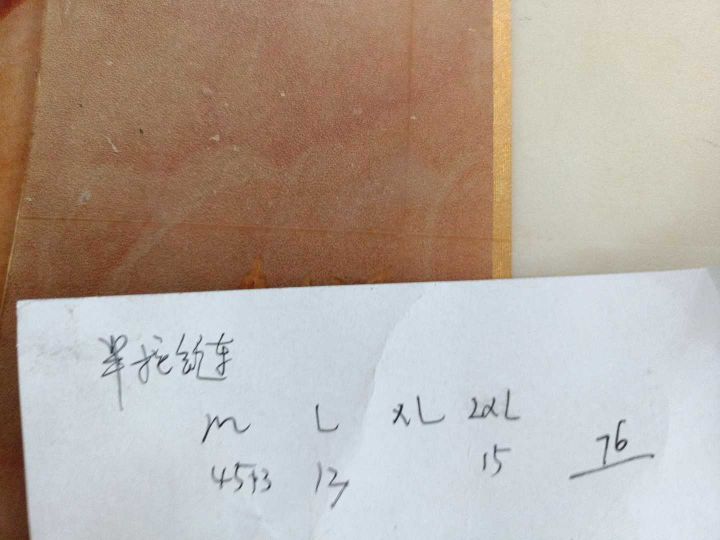 单
M L XL 2XL
45+3 13 15 76